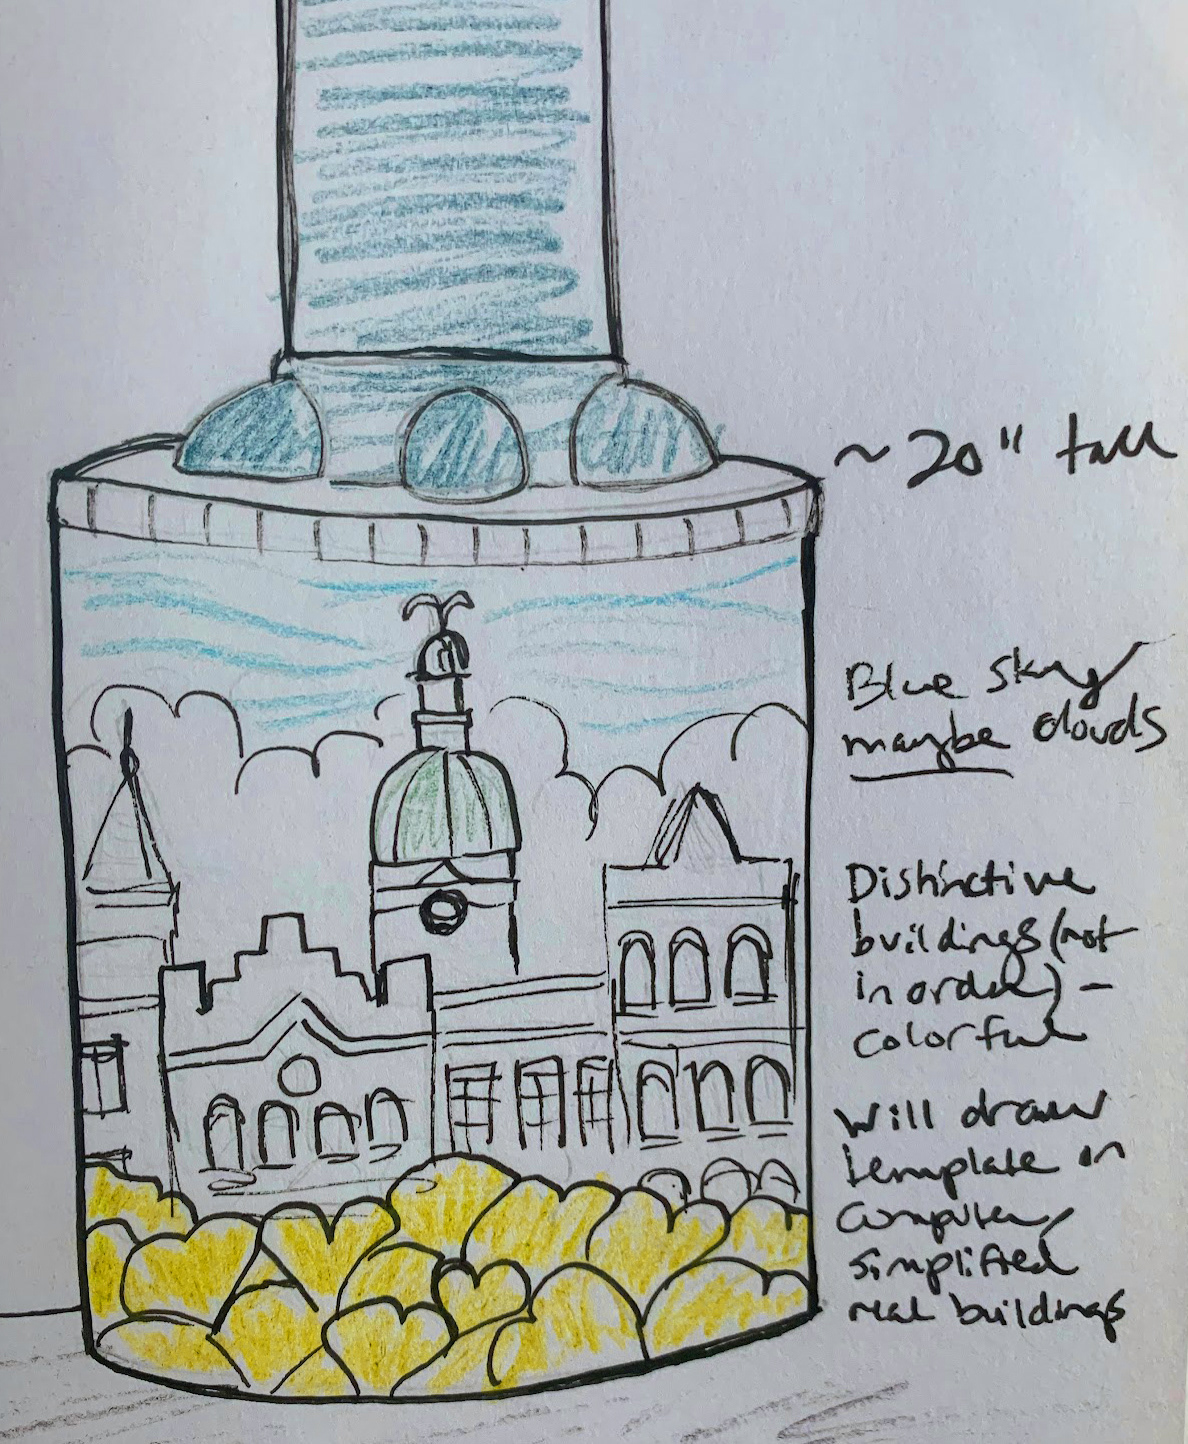 ~20" tall
Blue sky/
maybe clouds
Distinctive
buildings (not
in order) -
colorful
Will draw
template in
computer,
simplified
real buildings